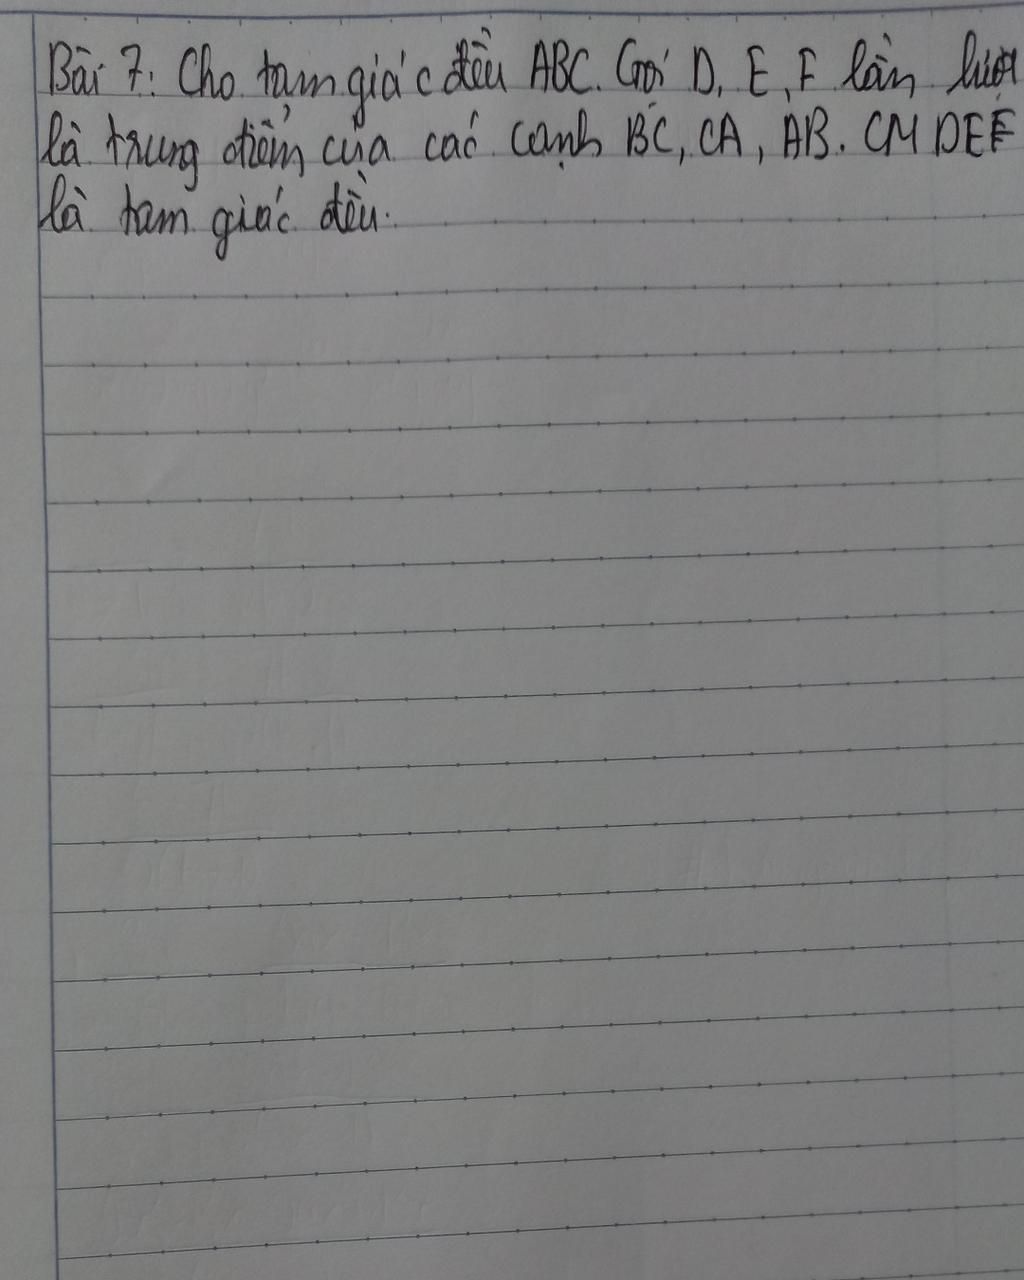 Bài 7: Cho tam giác đều ABC. Gọi D, E, F lần lượt
là trung điểm của các cạnh BC, CA, AB. CM DEF
là tam giác đều.